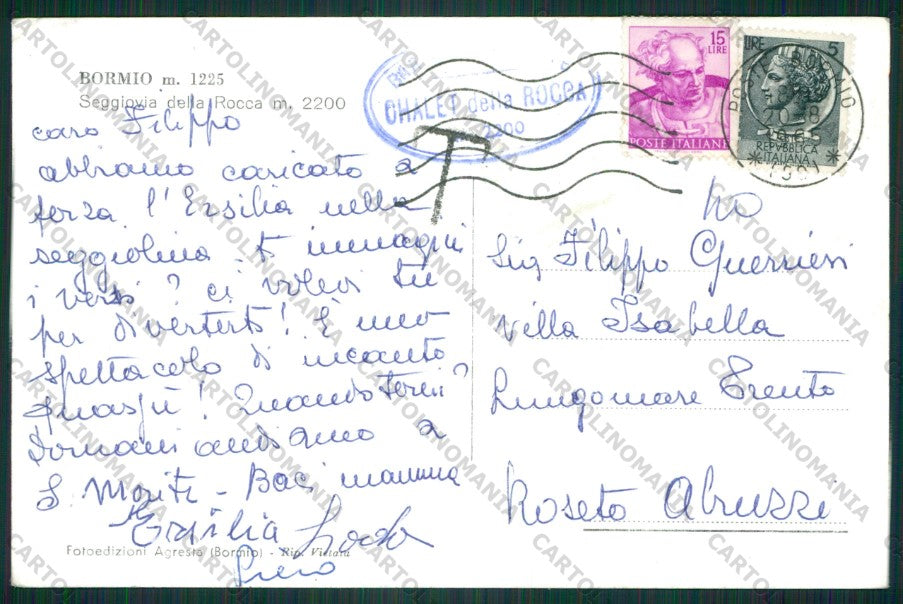 BORMIO m. 1225
Seggiovia della Rocca m. 2200
CHALET della ROCCA
2200
T
15
LIRE
POSTE ITALIANE
LIRE 5
REPVBBLICA
ITALIANA
20-8
1961
caro Filippo
abbiamo caricato a
forza l'Ersilia nella
seggiolina. t'immagini
i versi? ci volevi tu
per divertirti! È uno
spettacolo di incanto
quassù! Quando torni?
Domani andiamo a
S. Moritz - Baci mamma
Ersilia
Fotoedizioni Agresta (Bormio) - Rip. Vietata
Piero
Sig Filippo Guerrieri
Villa Isabella
Lungomare Trento
Roseto Abruzzi
CARTOLINOMANIA